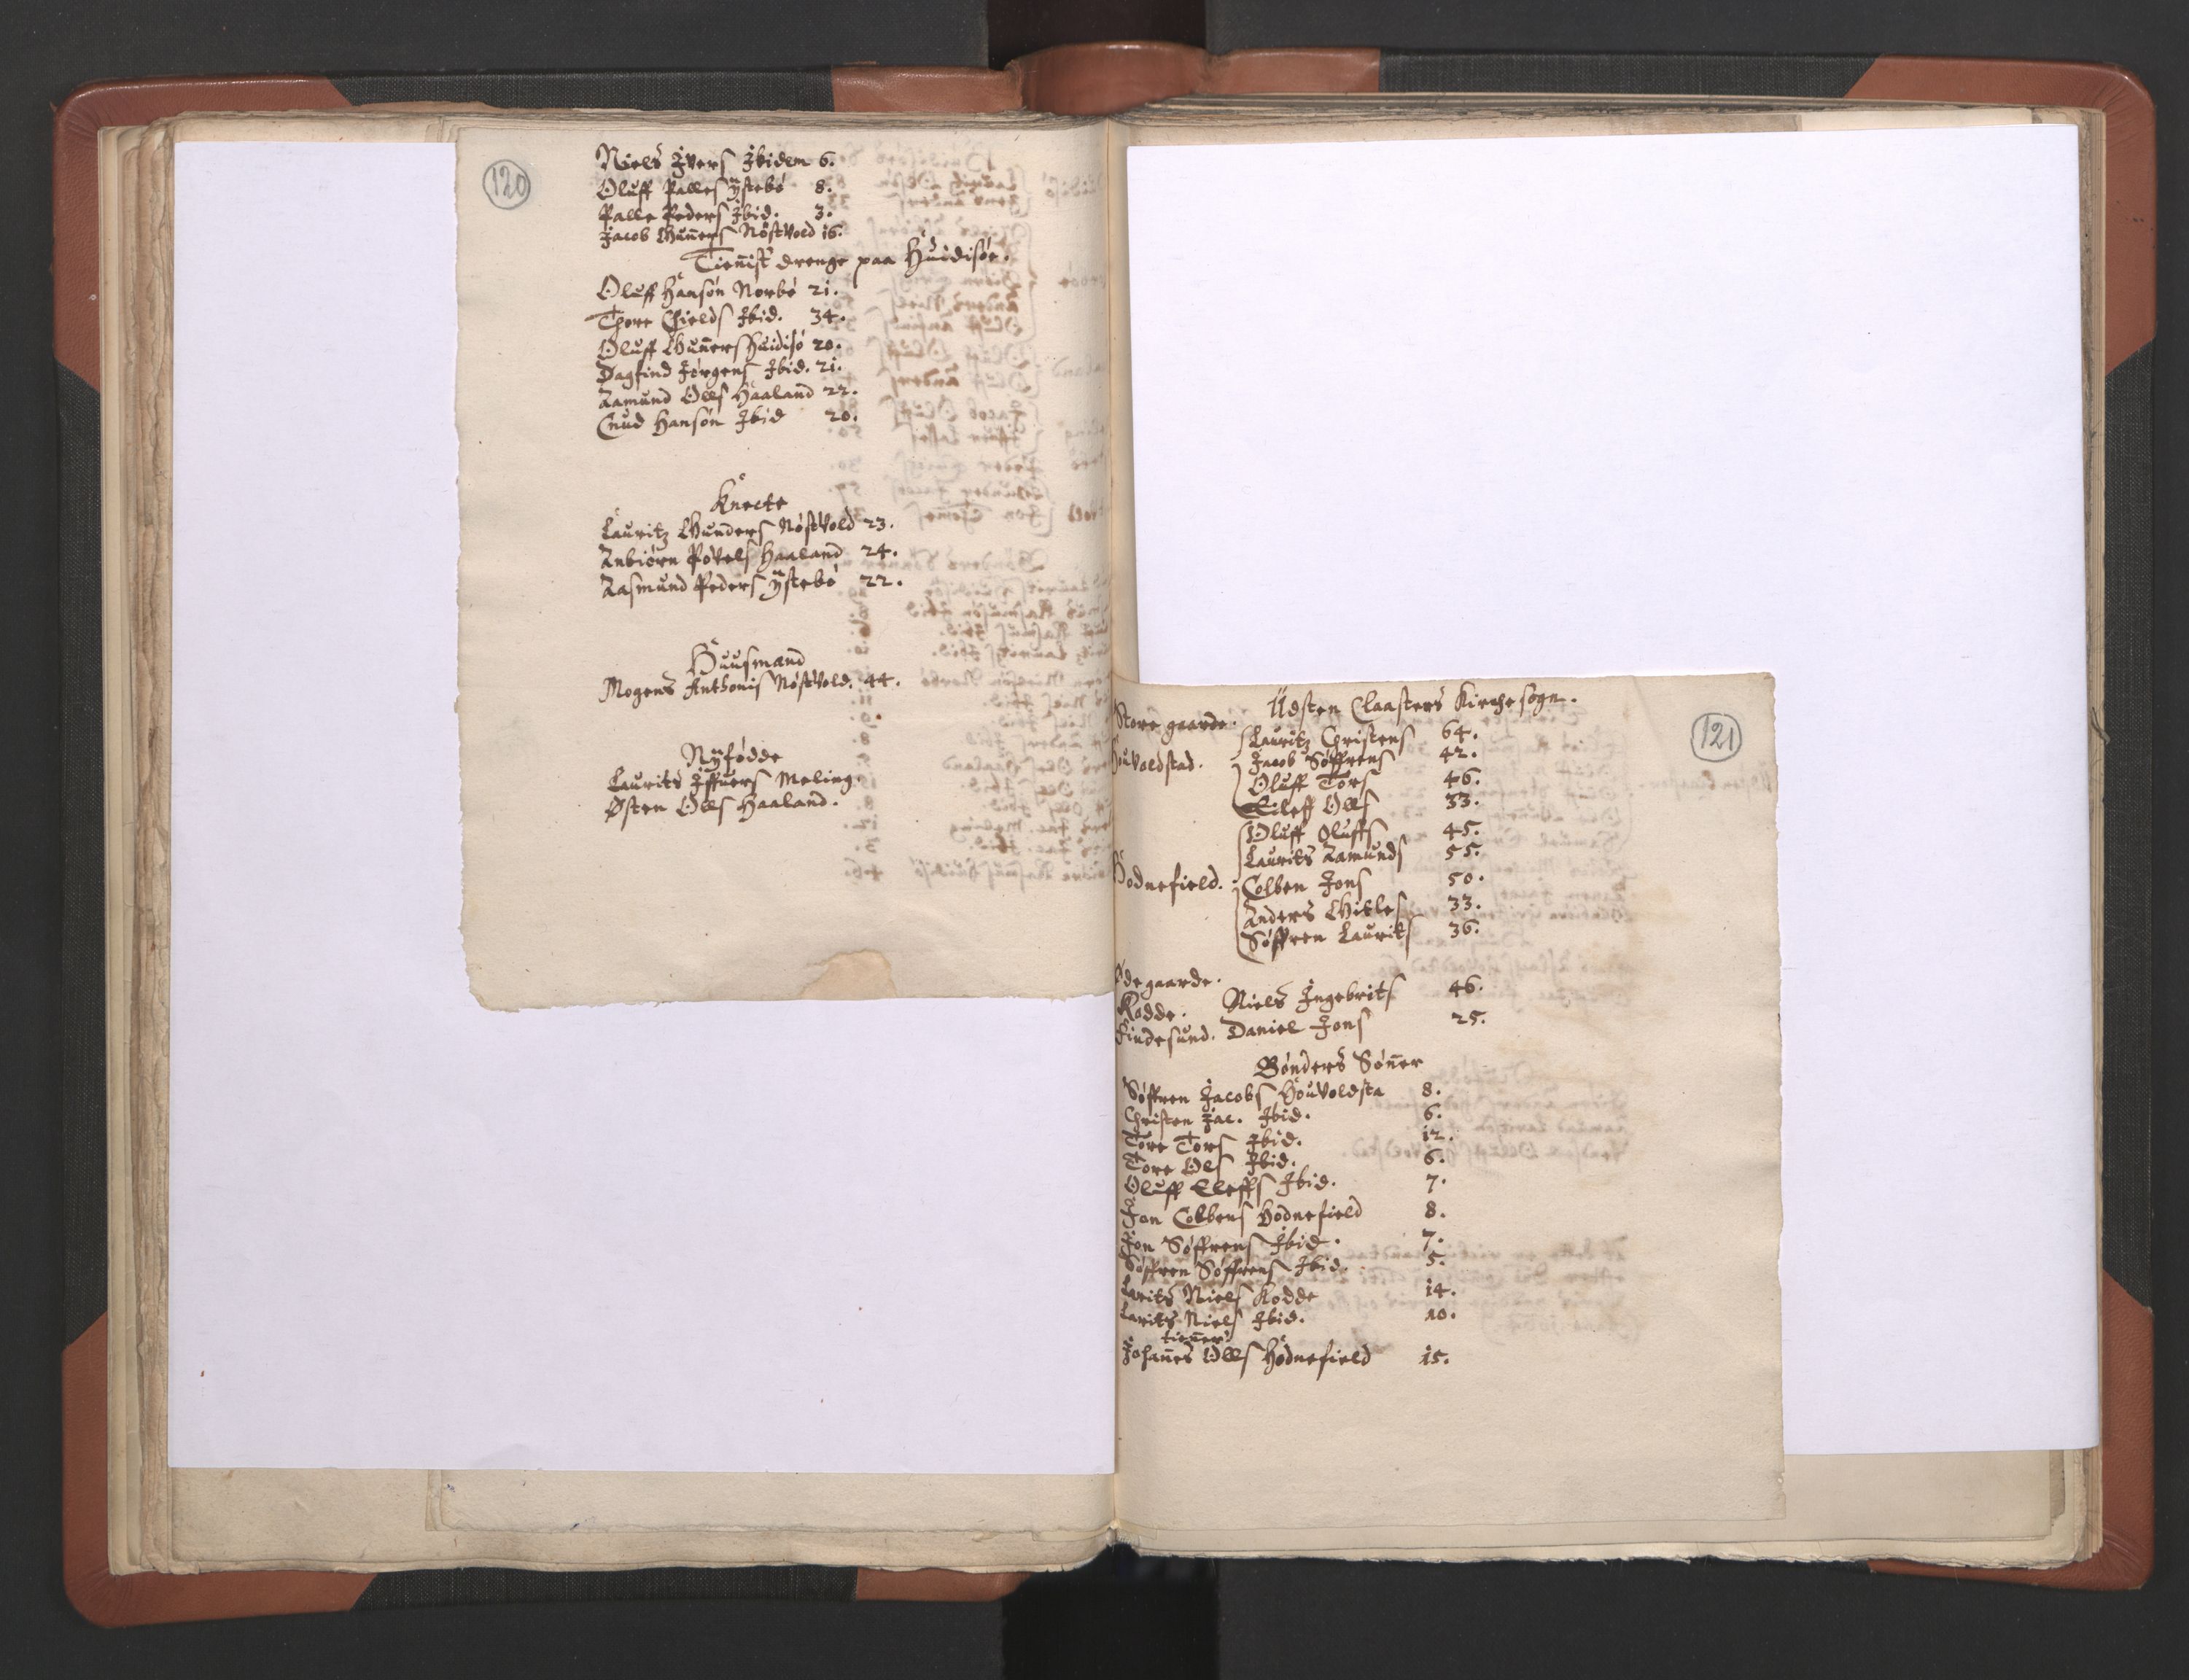 120
Niels Ivers Ibidem 6.
Oluff Palles Ÿstebø 8.
Palle Peders Ibid. 3.
Jacob Gunners Nøstvold 16.
Tienist drenge paa Huidisøe.
Oluff Hansøn Norbø 21.
Thore Chields Ibid. 34.
Oluff Gunners Huidisø 20.
Dagfind Jørgens Ibid. 21.
Aamund Olls Haaland 22.
Cnud Hansøn Ibid 20.
Knecte
Lauritz Gunders Nøstvold 23.
Anbiørn Povels Haaland 24.
Aasmund Peders Ÿstebø 22.
Huusmænd
Mogens Anthonis Nøstvold. 44.
Nÿfødde
Laurits Iffuers Meling.
Østen Olls Haaland.
121
Udsten Claasters Kirche sogn.
Store gaarde.
Houvoldstad. Lauritz Christens 64.
Jacob Søffrens 42.
Oluff Tors 46.
Eileff Olls 33.
Hodnefield. Oluff Oluffs 45.
Laurits Aamunds 55.
Colben Jons 50.
Anders 33.
Søffren Laurits 36.
Ødegaarde.
Kodde. Niels Ingebrits 46.
Findesund. Daniel Jons 25.
Bønders Sønner
Søffren Jacobs Houvoldsta 8.
Christen Jac. Ibid. 6.
Tore Tors Ibid. 12.
Tore Ols Ibid. 6.
Oluff Eleffs Ibid. 7.
Jon Colbens Hodnefield 8.
Jon Søffrens Ibid. 7.
Søffren Søffrens Ibid. 5.
Larits Niels Kodde 14.
Larits Niels Ibid. 10.
tienner
Johannes Olls Hodnefield 15.